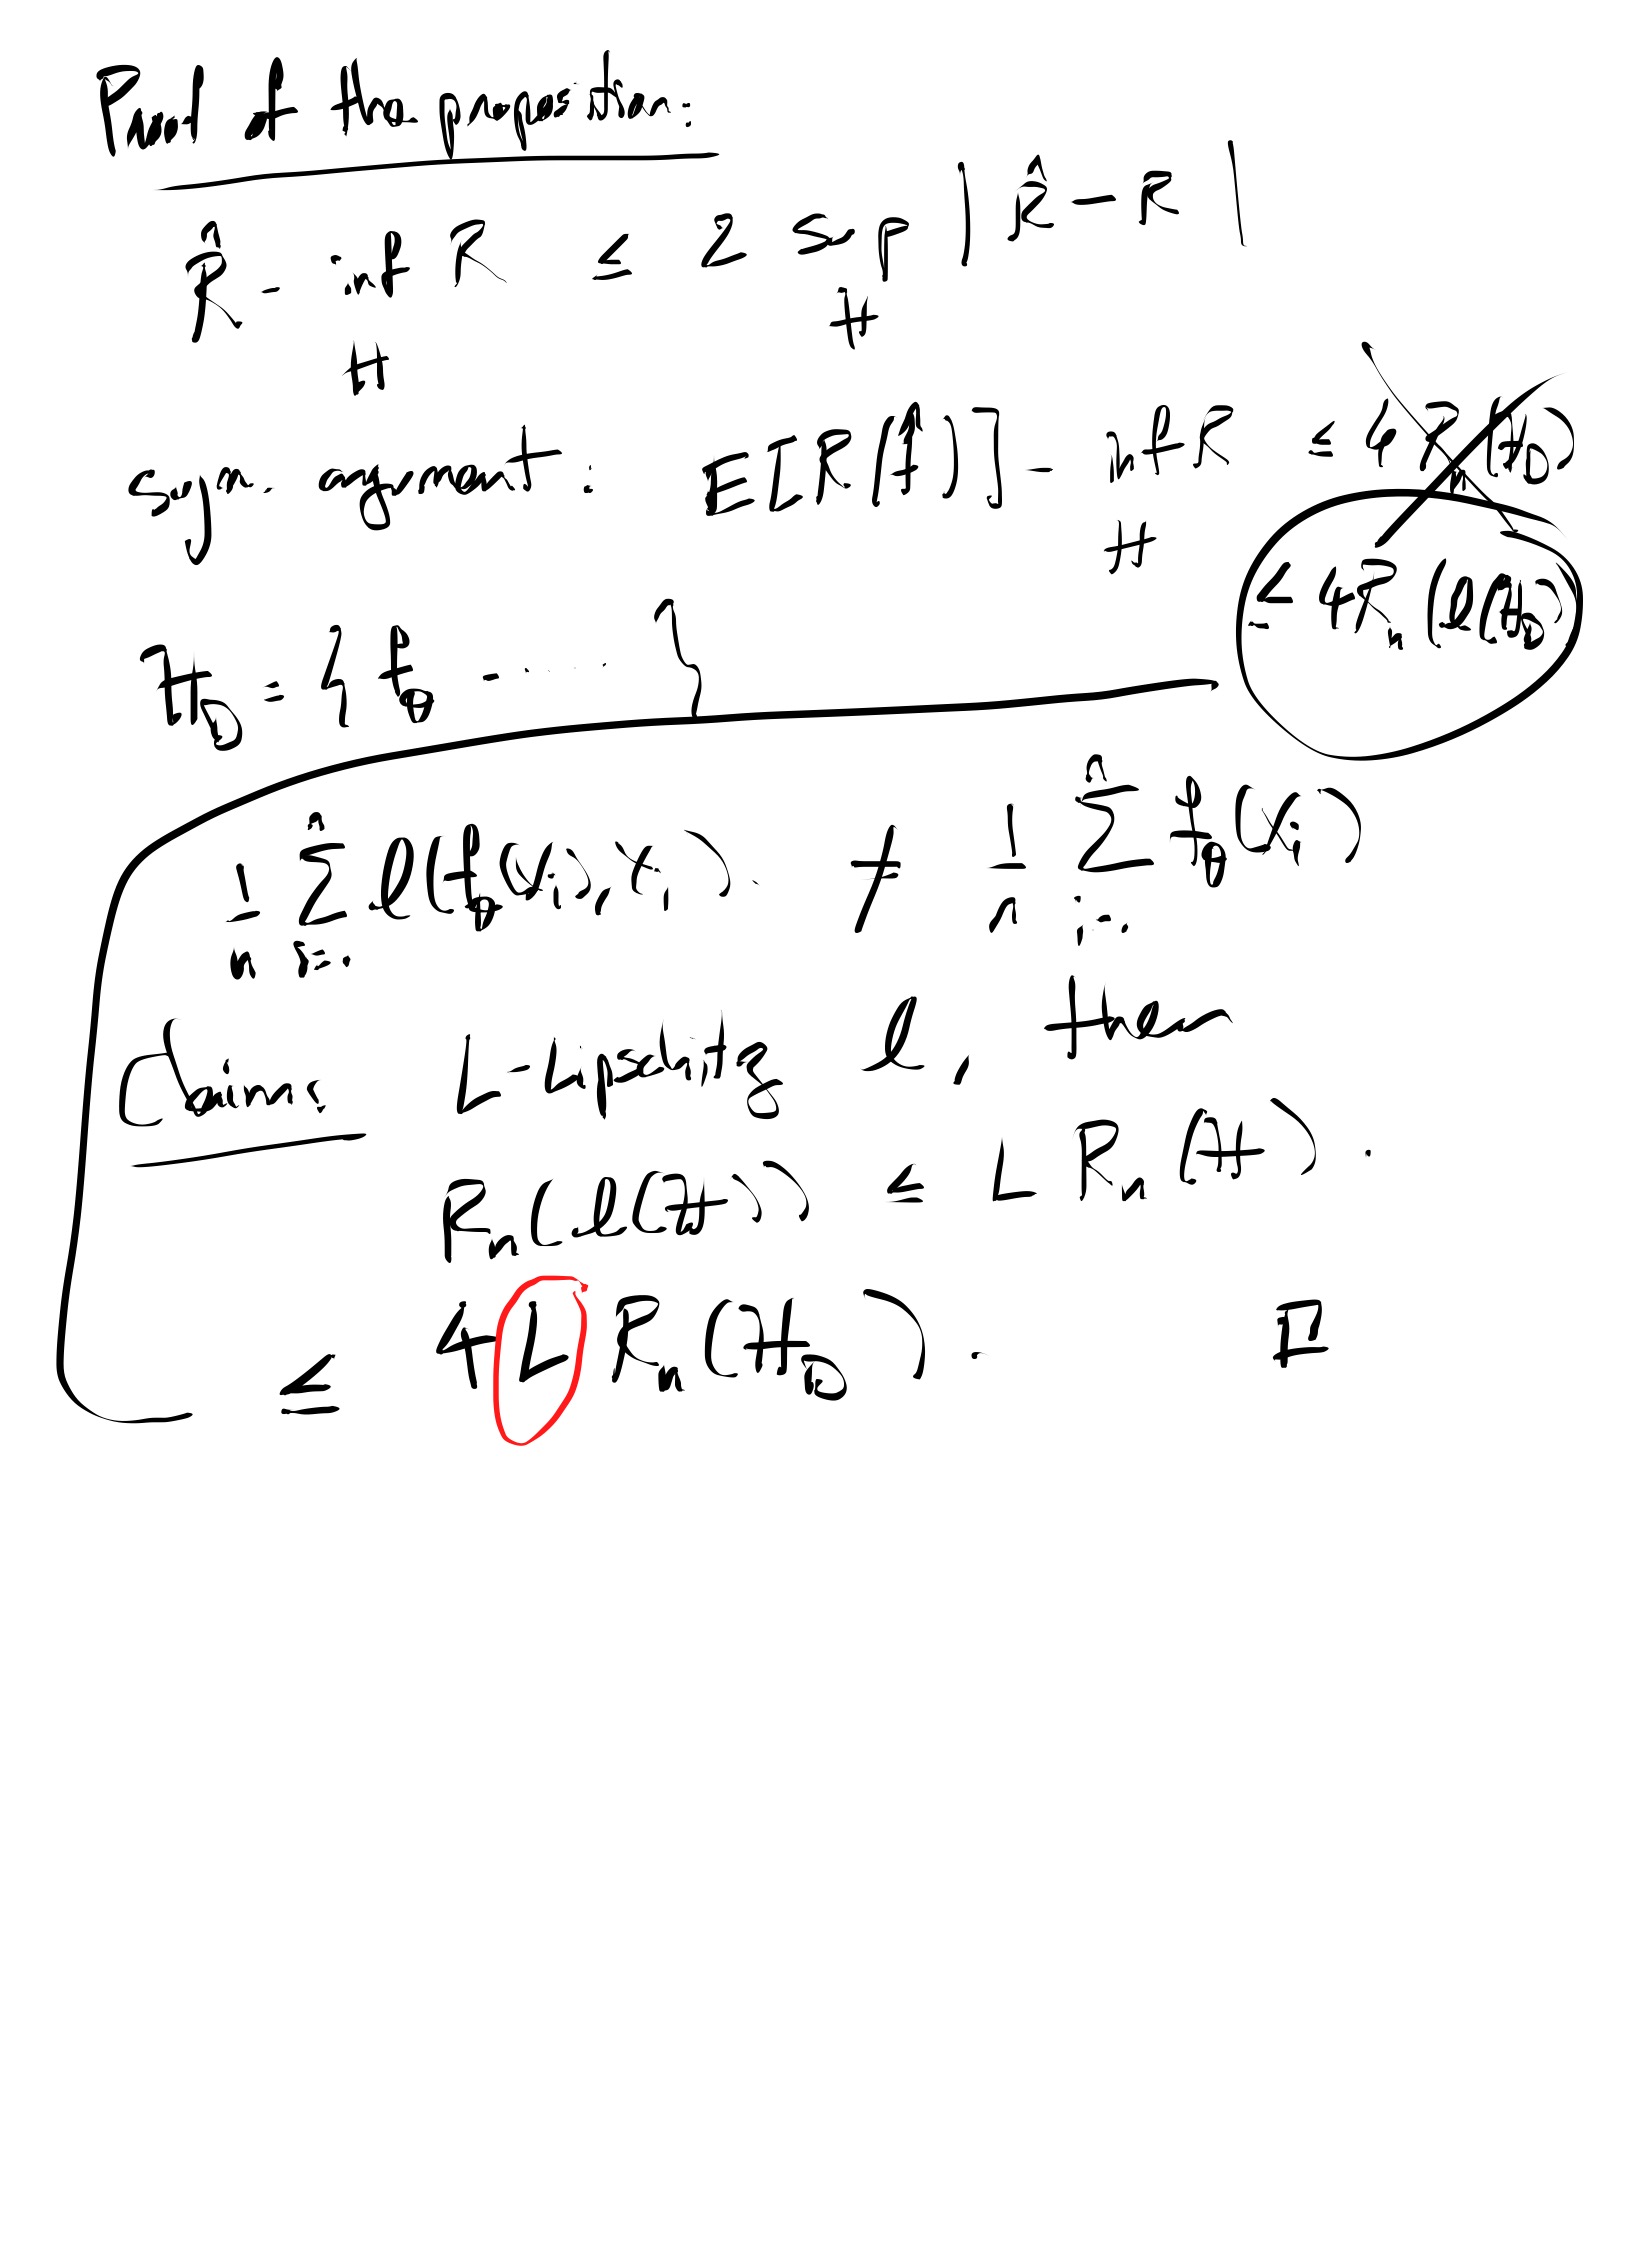 Proof of the proposition:
R̂ - inf_H R ≤ 2 sup_H | R̂ - R |
sym. argument : E[R(f̂)] - inf_H R ≤ 4 R_n(H_D)
≤ 4 R_n(l(H_D))
H_D = { f_θ - ..... }
1/n ∑_{i=1}^n l(f_θ(x_i), Y_i). ≠ 1/n ∑_{i=1}^n f_θ(x_i)
Claim: L-Lipschitz l, then
R_n(l(H)) ≤ L R_n(H).
≤ 4 L R_n(H_D). □